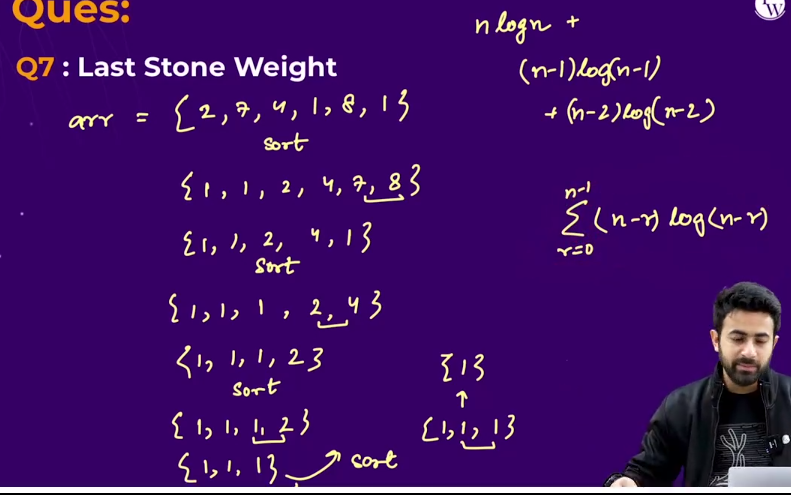 Ques:
Q7 : Last Stone Weight
arr = {2, 7, 4, 1, 8, 1}
sort
{1, 1, 2, 4, 7, 8}
{1, 1, 2, 4, 1}
sort
{1, 1, 1, 2, 4}
{1, 1, 1, 2}
sort
{1, 1, 1, 2}
{1, 1, 1} sort
{1}
↑
{1, 1, 1}
n log n +
(n-1) log(n-1)
+ (n-2) log(n-2)
n-1
∑ (n-r) log(n-r)
r=0
W